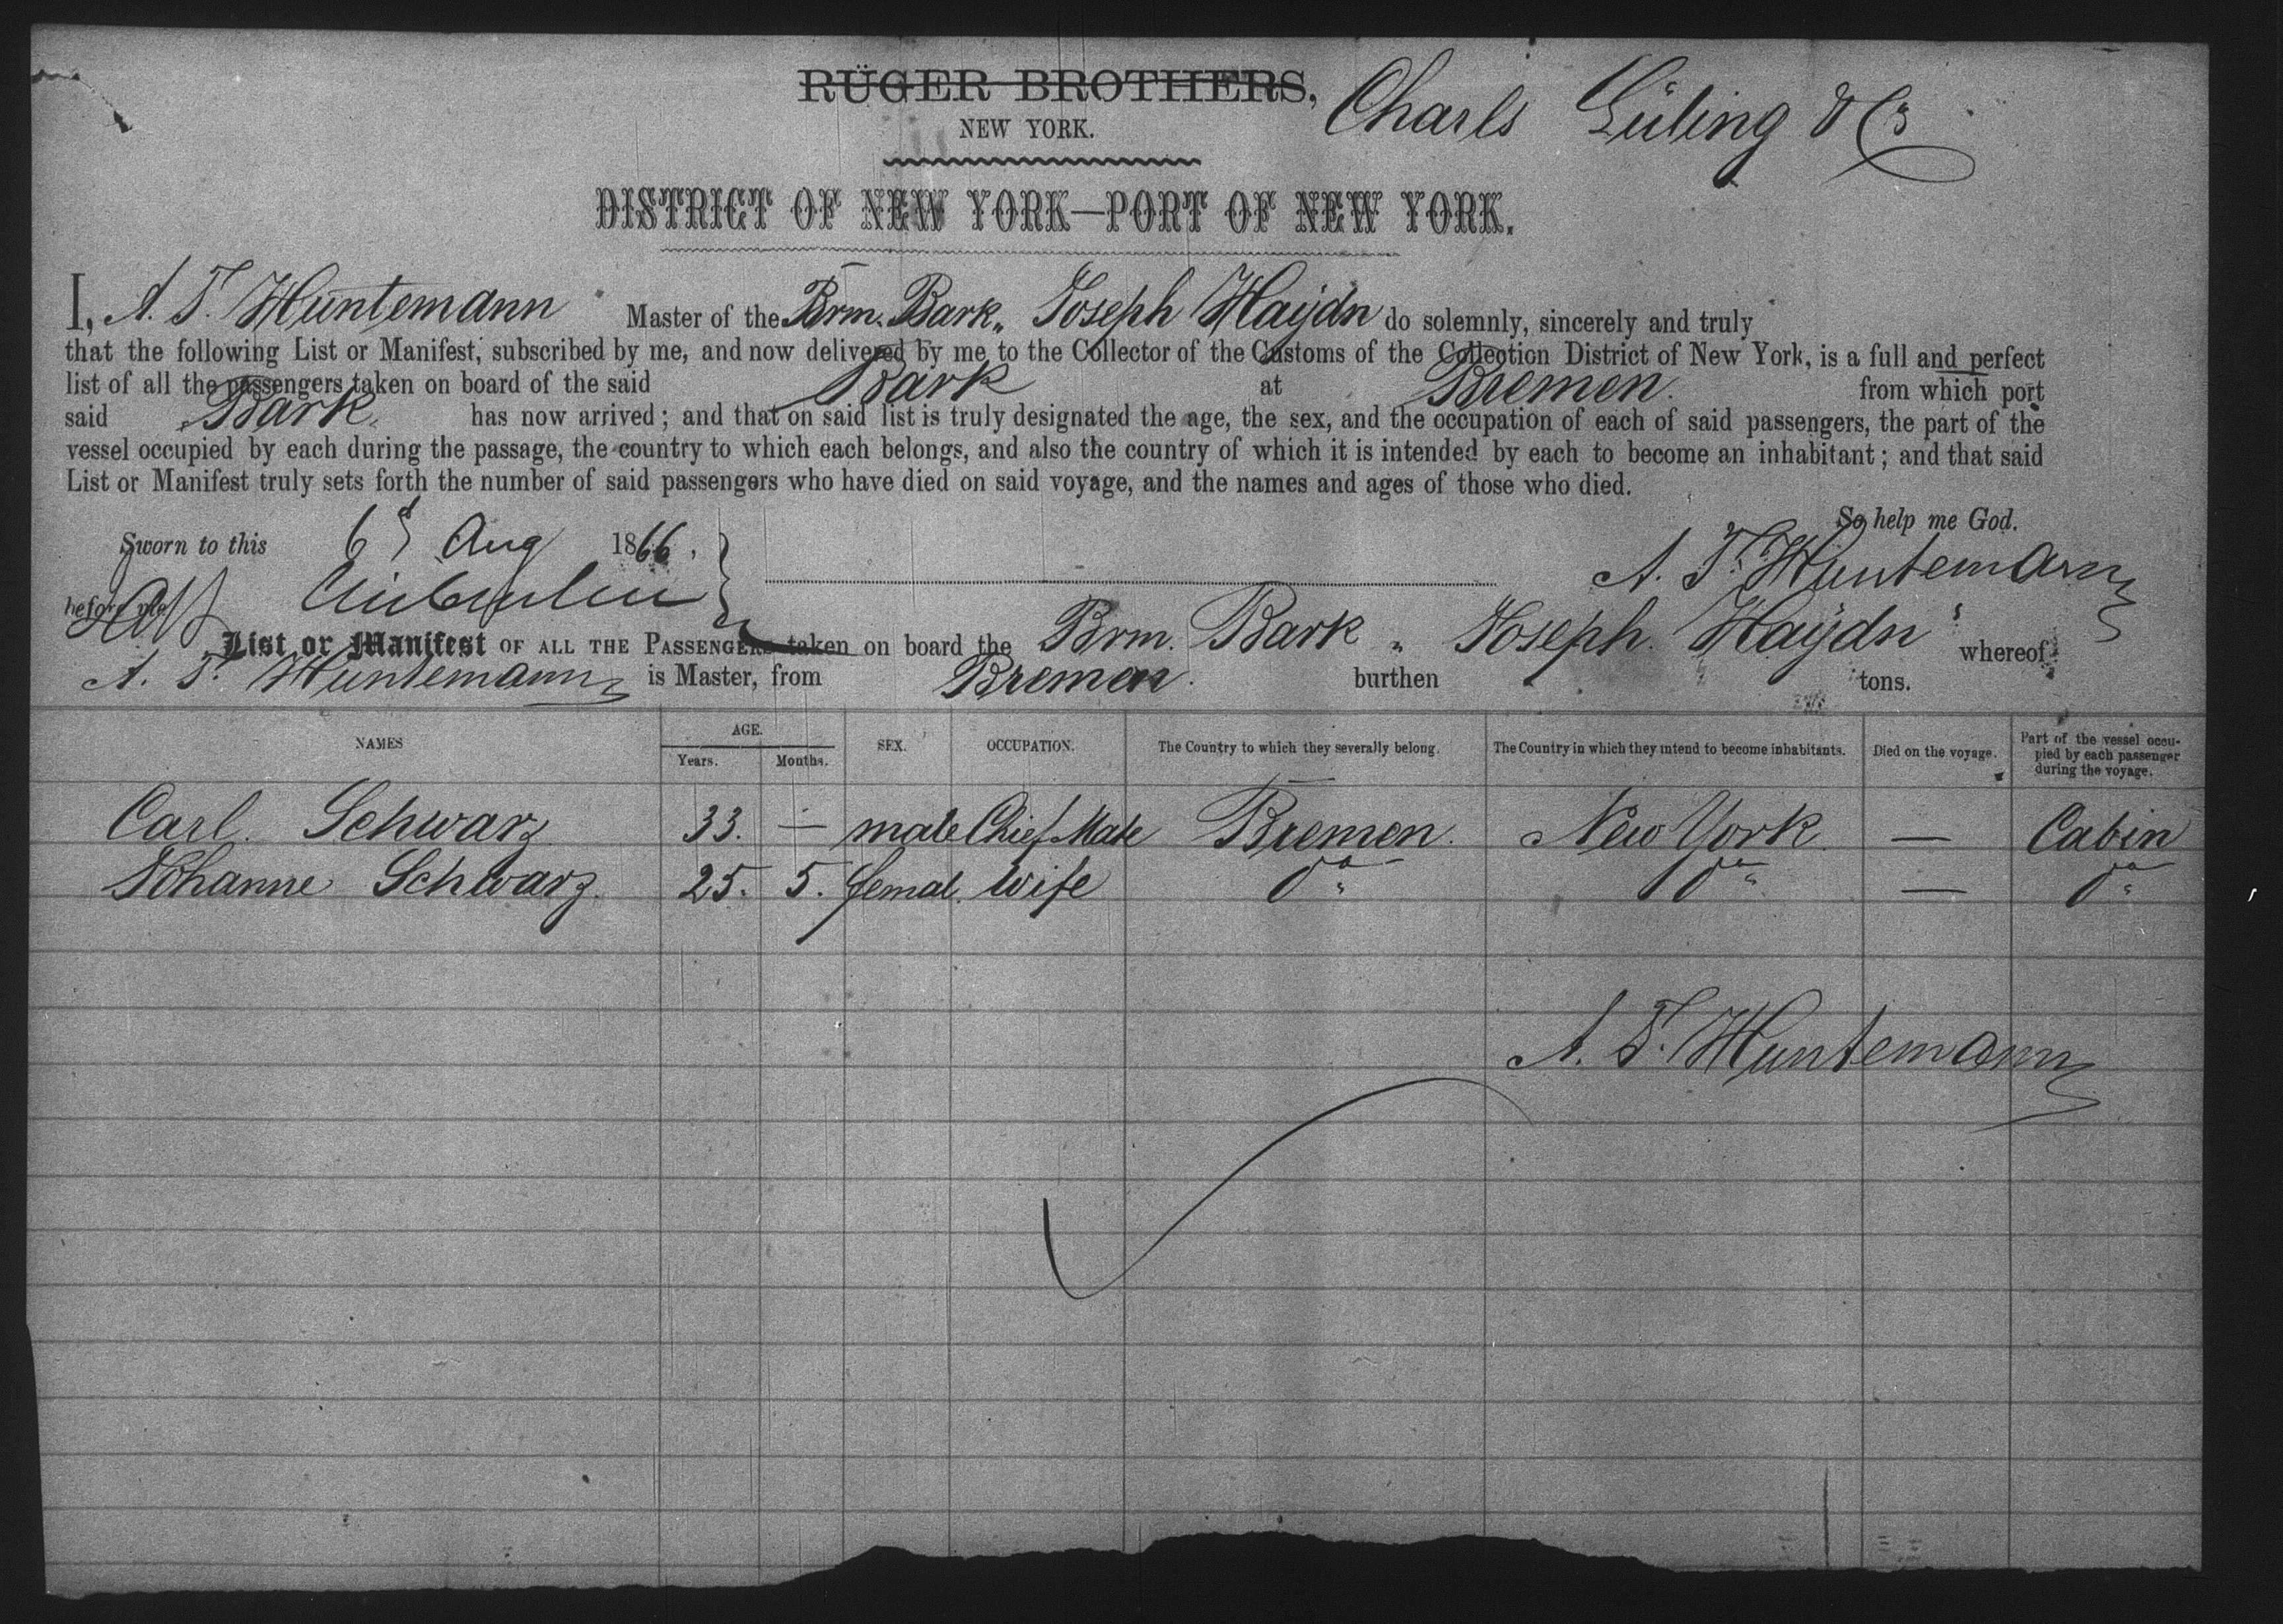 RÜGER BROTHERS, Charls Lüling & Co
NEW YORK.
DISTRICT OF NEW YORK—PORT OF NEW YORK.
I, A. F. Huntemann Master of the Brm. Bark „ Joseph Haydn do solemnly, sincerely and truly
that the following List or Manifest, subscribed by me, and now delivered by me to the Collector of the Customs of the Collection District of New York, is a full and perfect
list of all the passengers taken on board of the said Bark at Bremen. from which port
said Bark. has now arrived; and that on said list is truly designated the age, the sex, and the occupation of each of said passengers, the part of the
vessel occupied by each during the passage, the country to which each belongs, and also the country of which it is intended by each to become an inhabitant; and that said
List or Manifest truly sets forth the number of said passengers who have died on said voyage, and the names and ages of those who died.
So help me God.
Sworn to this 6 Aug 1866,
A. F. Huntemann
before me
List or Manifest OF ALL THE PASSENGERS taken on board the Brm. Bark „ Joseph. Haydn whereof
A. F. Huntemann is Master, from Bremen. burthen tons.
NAMES AGE. Years. Months. SEX. OCCUPATION. The Country to which they severally belong. The Country in which they intend to become inhabitants. Died on the voyage. Part of the vessel occupied by each passenger during the voyage.
Carl. Schwarz 33. — male Chief Mate Bremen. New York. — Cabin
Johanne Schwarz. 25. 5. femal. Wife do do — do
A. F. Huntemann